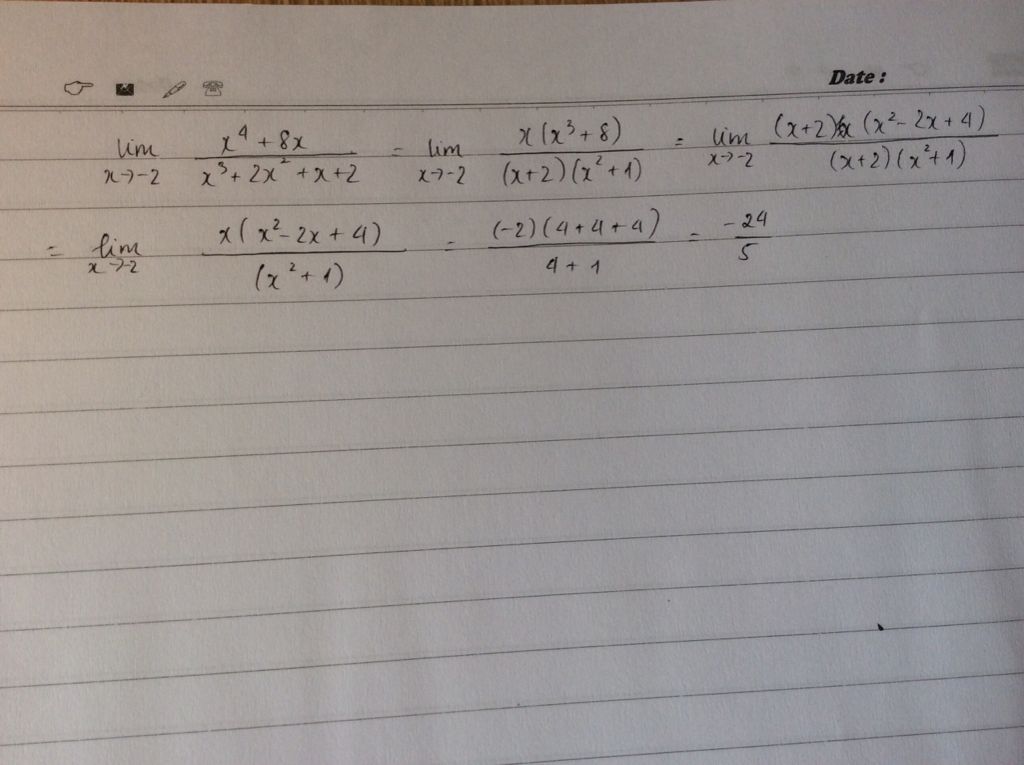 Date :
lim x→-2 (x⁴ + 8x)/(x³ + 2x² + x + 2) = lim x→-2 x(x³ + 8)/((x+2)(x² + 1)) = lim x→-2 (x+2)x(x² - 2x + 4)/((x+2)(x² + 1))
= lim x→-2 x(x² - 2x + 4)/(x² + 1) = (-2)(4 + 4 + 4)/(4 + 1) = -24/5